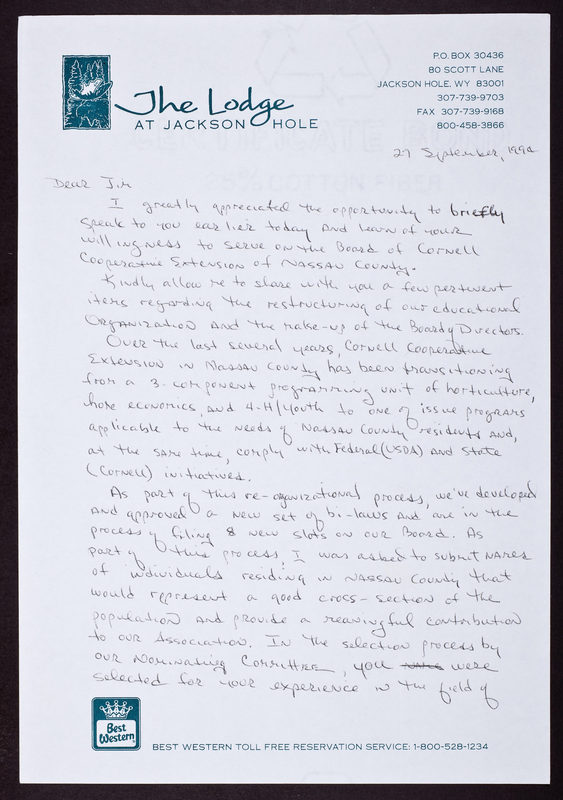 The Lodge
AT JACKSON HOLE
P.O. BOX 30436
80 SCOTT LANE
JACKSON HOLE, WY 83001
307-739-9703
FAX 307-739-9168
800-458-3866
27 September, 1994
Dear Jim
I greatly appreciated the opportunity to briefly
speak to you earlier today and learn of your
willingness to serve on the Board of Cornell
Cooperative Extension of Nassau County.
Kindly allow me to share with you a few pertinent
items regarding the restructuring of our educational
Organization and the make-up of the Board of Directors.
Over the last several years, Cornell Cooperative
Extension in Nassau County has been transitioning
from a 3-component programming unit of horticulture,
home economics, and 4-H/Youth to one of issue programs
applicable to the needs of Nassau County residents and,
at the same time, comply with Federal (USDA) and State
(Cornell) initiatives.
As part of this re-organizational process, we've developed
and approved a new set of bi-laws and are in the
process of filing 8 new slots on our Board. As
part of this process, I was asked to submit names
of individuals residing in Nassau County that
would represent a good cross-section of the
population and provide a meaningful contribution
to our Association. In the selection process by
our Nominating Committee, you were
selected for your experience in the field of
Best
Western
BEST WESTERN TOLL FREE RESERVATION SERVICE: 1-800-528-1234